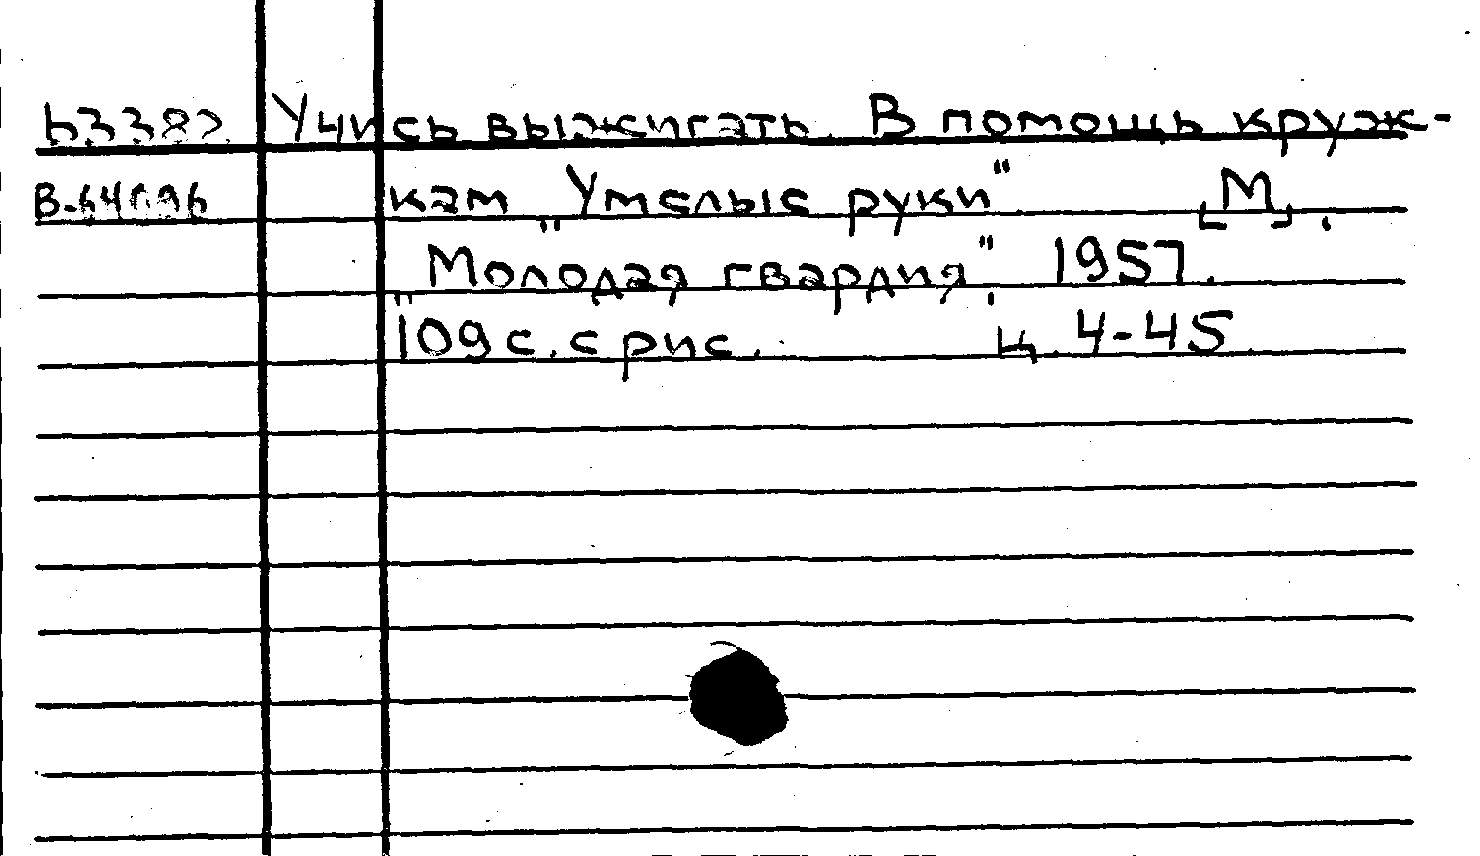 Учись выжигать. В помощь круж-
кам „Умелые руки" [М].
„Молодая гвардия", 1957.
109 с. с рис. ц. 4-45